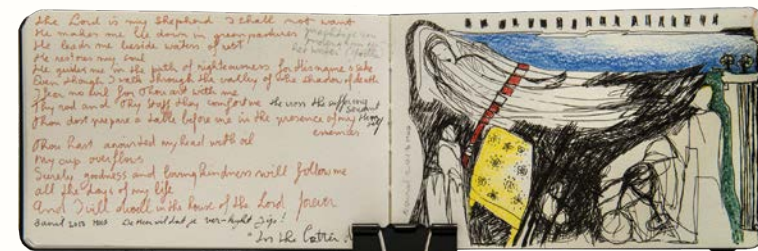 The Lord is my Shepherd I shall not want
He makes me lie down in green pastures
He leads me beside waters of rest
He restores my soul
He guides me in the path of righteousness for His name's sake
Even though I walk through the valley of the shadow of death
I fear no evil for Thou art with me
Thy rod and Thy staff they comfort me He was the suffering Servant
Thou dost prepare a table before me in the presence of my enemies
Thou hast anointed my head with oil
My cup overflows
Surely goodness and lovingkindness will follow me
all the days of my life
and I will dwell in the house of the Lord forever
3 april 2013
"In the